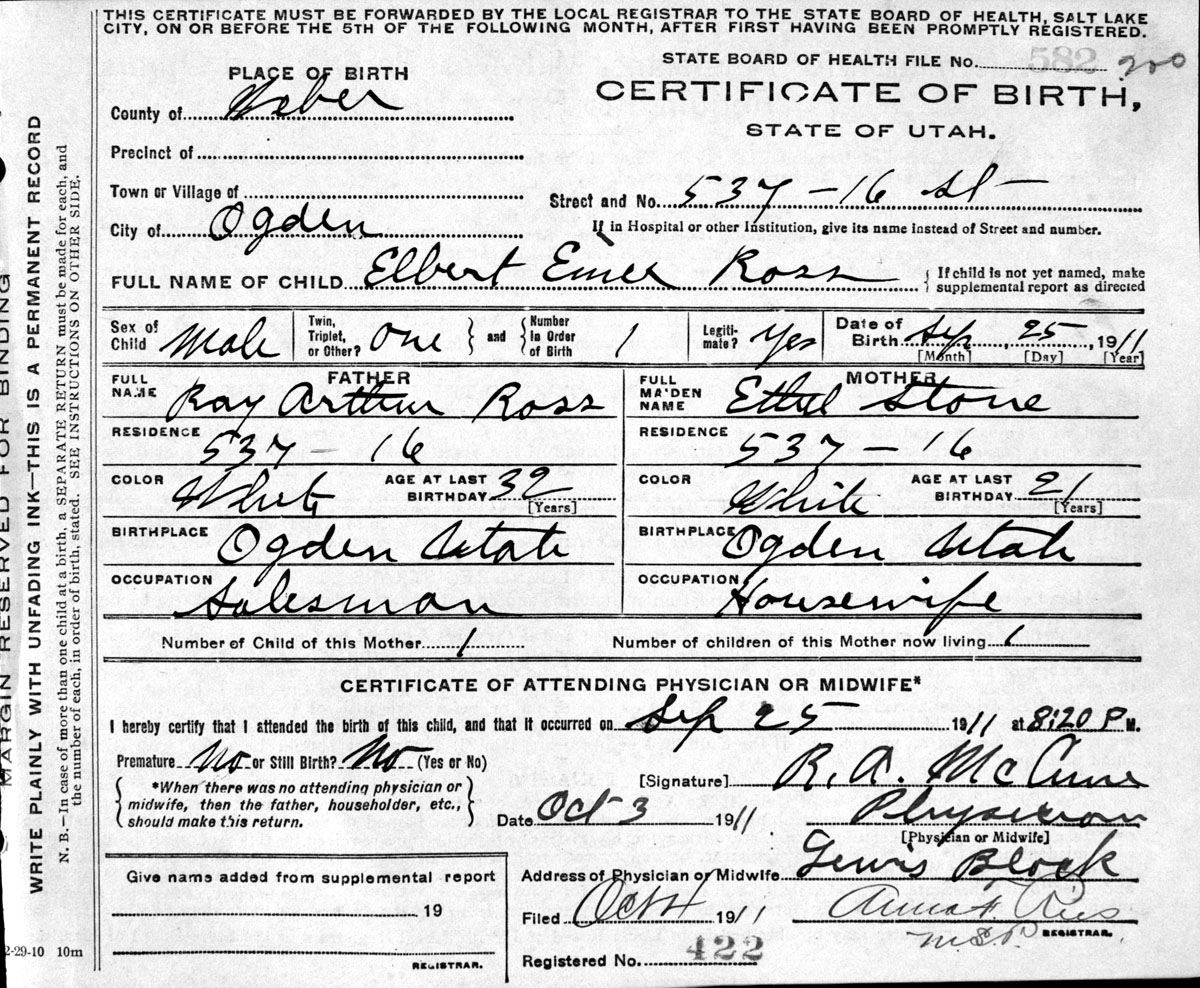 THIS CERTIFICATE MUST BE FORWARDED BY THE LOCAL REGISTRAR TO THE STATE BOARD OF HEALTH, SALT LAKE
CITY, ON OR BEFORE THE 5TH OF THE FOLLOWING MONTH, AFTER FIRST HAVING BEEN PROMPTLY REGISTERED.
STATE BOARD OF HEALTH FILE No. 582 200
PLACE OF BIRTH
CERTIFICATE OF BIRTH,
STATE OF UTAH.
County of Weber
Precinct of
Town or Village of
Street and No. 537-16 St
City of Ogden
If in Hospital or other Institution, give its name instead of Street and number.
FULL NAME OF CHILD Elbert Emer Ross { If child is not yet named, make
supplemental report as directed
Sex of Child Male Twin, Triplet, or Other? One } and { Number in Order of Birth 1 Legiti-mate? Yes Date of Birth Sep, 25, 1911
[Month] [Day] [Year]
FATHER
FULL NAME Ray Arthur Ross
RESIDENCE 537-16
COLOR White AGE AT LAST BIRTHDAY 32 [Years]
BIRTHPLACE Ogden Utah
OCCUPATION Salesman
MOTHER
FULL MAIDEN NAME Ethel Stone
RESIDENCE 537-16
COLOR White AGE AT LAST BIRTHDAY 21 [Years]
BIRTHPLACE Ogden Utah
OCCUPATION Housewife
Number of Child of this Mother 1 Number of children of this Mother now living 1
CERTIFICATE OF ATTENDING PHYSICIAN OR MIDWIFE*
I hereby certify that I attended the birth of this child, and that it occurred on Sep 25 1911 at 8:20 P M.
Premature No or Still Birth? No (Yes or No)
[Signature] R. A. McCune
{ *When there was no attending physician or
midwife, then the father, householder, etc.,
should make this return. }
Date Oct 3 1911 Physician
[Physician or Midwife]
Address of Physician or Midwife Lewis Block
Filed Oct 4 1911 Anna F.
REGISTRAR.
Registered No. 422
Give name added from supplemental report
19
REGISTRAR.
2-29-10 10m
MARGIN RESERVED FOR BINDING
WRITE PLAINLY WITH UNFADING INK—THIS IS A PERMANENT RECORD
N. B.—In case of more than one child at a birth, a SEPARATE RETURN must be made for each, and
the number of each, in order of birth, stated. SEE INSTRUCTIONS ON OTHER SIDE.